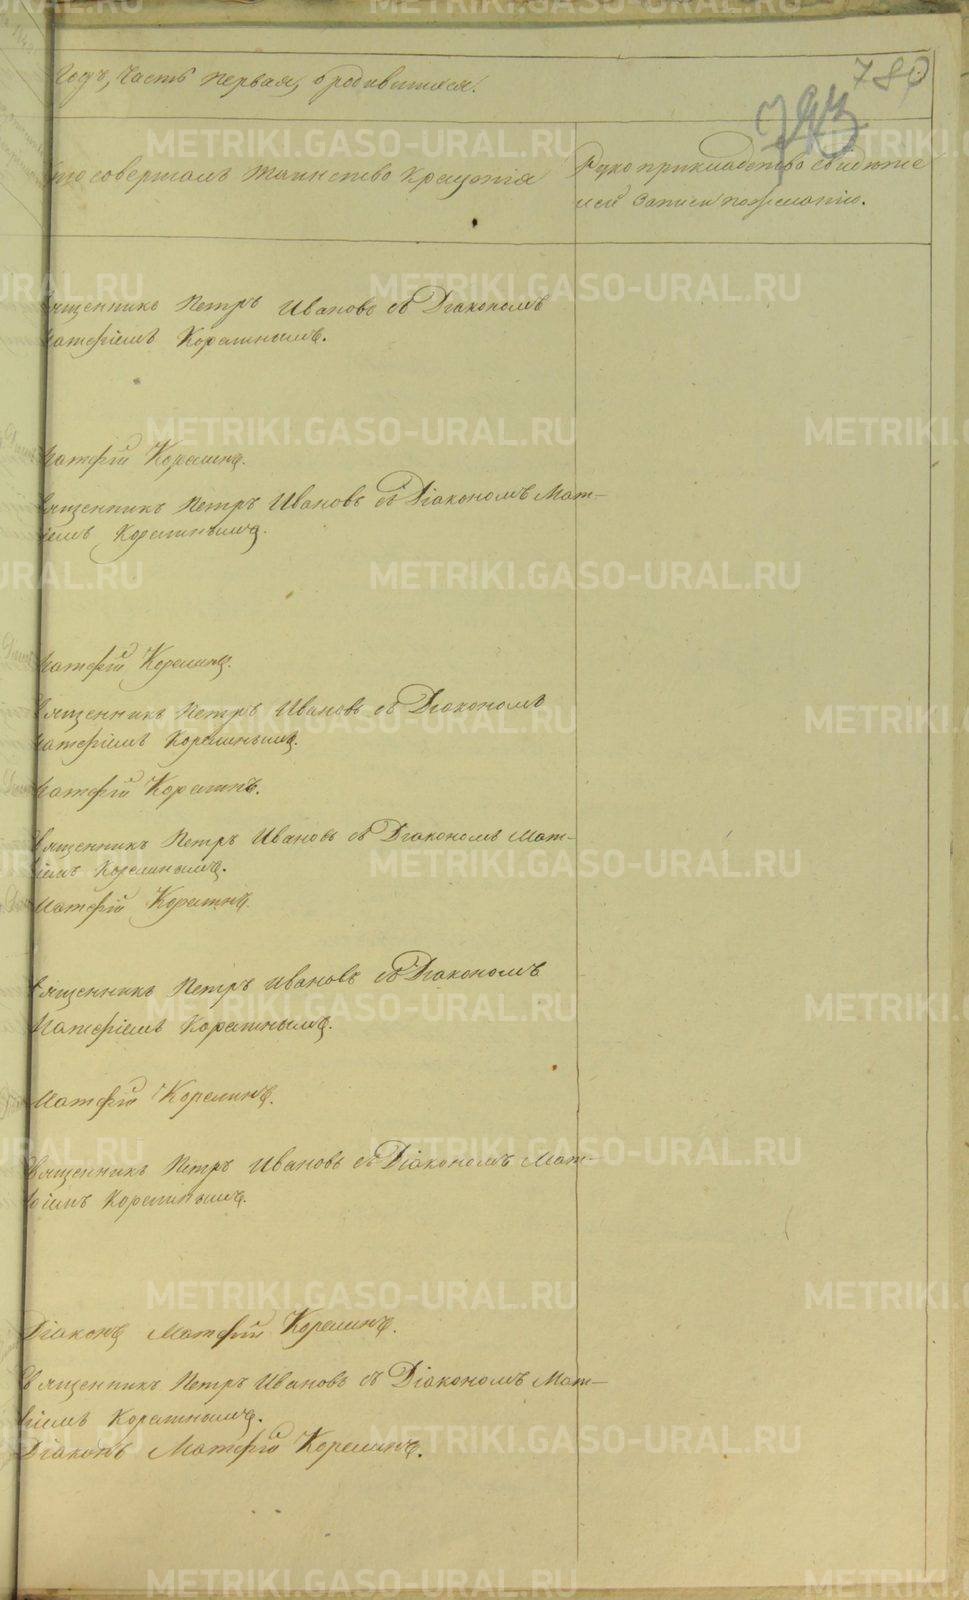 780
годъ, часть первая, о родившихся.
743
Кто совершалъ таинство крещенія
Рукоприкладство свидѣте
лей записи по желанію.
ященникъ Петръ Ивановъ съ Діакономъ
атфіемъ Корелинымъ.
Матфій Корелинъ.
вященникъ Петръ Ивановъ съ Діакономъ Мат-
іемъ Корелинымъ.
Матфій Корелинъ.
вященникъ Петръ Ивановъ съ Діакономъ
атфіемъ Корелинымъ.
Матфій Корелинъ.
вященникъ Петръ Ивановъ съ Діакономъ Мат-
іемъ Корелинымъ.
Матфій Корелинъ.
вященникъ Петръ Ивановъ съ Діакономъ
Матфіемъ Корелинымъ.
Матфій Корелинъ.
Священникъ Петръ Ивановъ съ Діакономъ Мат-
фіемъ Корелинымъ.
Діаконъ Матфій Корелинъ.
Священникъ Петръ Ивановъ съ Діакономъ Мат-
фіемъ Корелинымъ.
Діаконъ Матфій Корелинъ.
METRIKI.GASO-URAL.RU